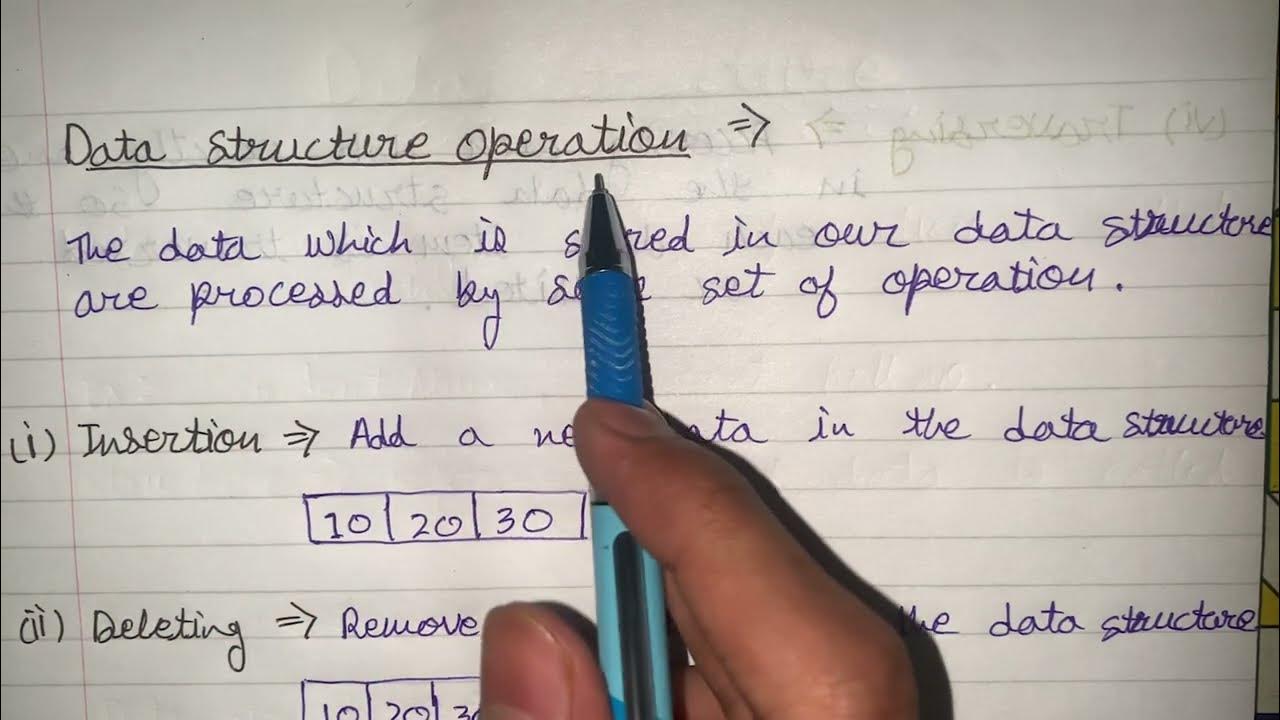 Data structure operation ⇒
The data which is stored in our data structure
are processed by some set of operation.
(i) Insertion ⇒ Add a new data in the data structure
10 20 30
(ii) Deleting ⇒ Remove the data structure
10 20